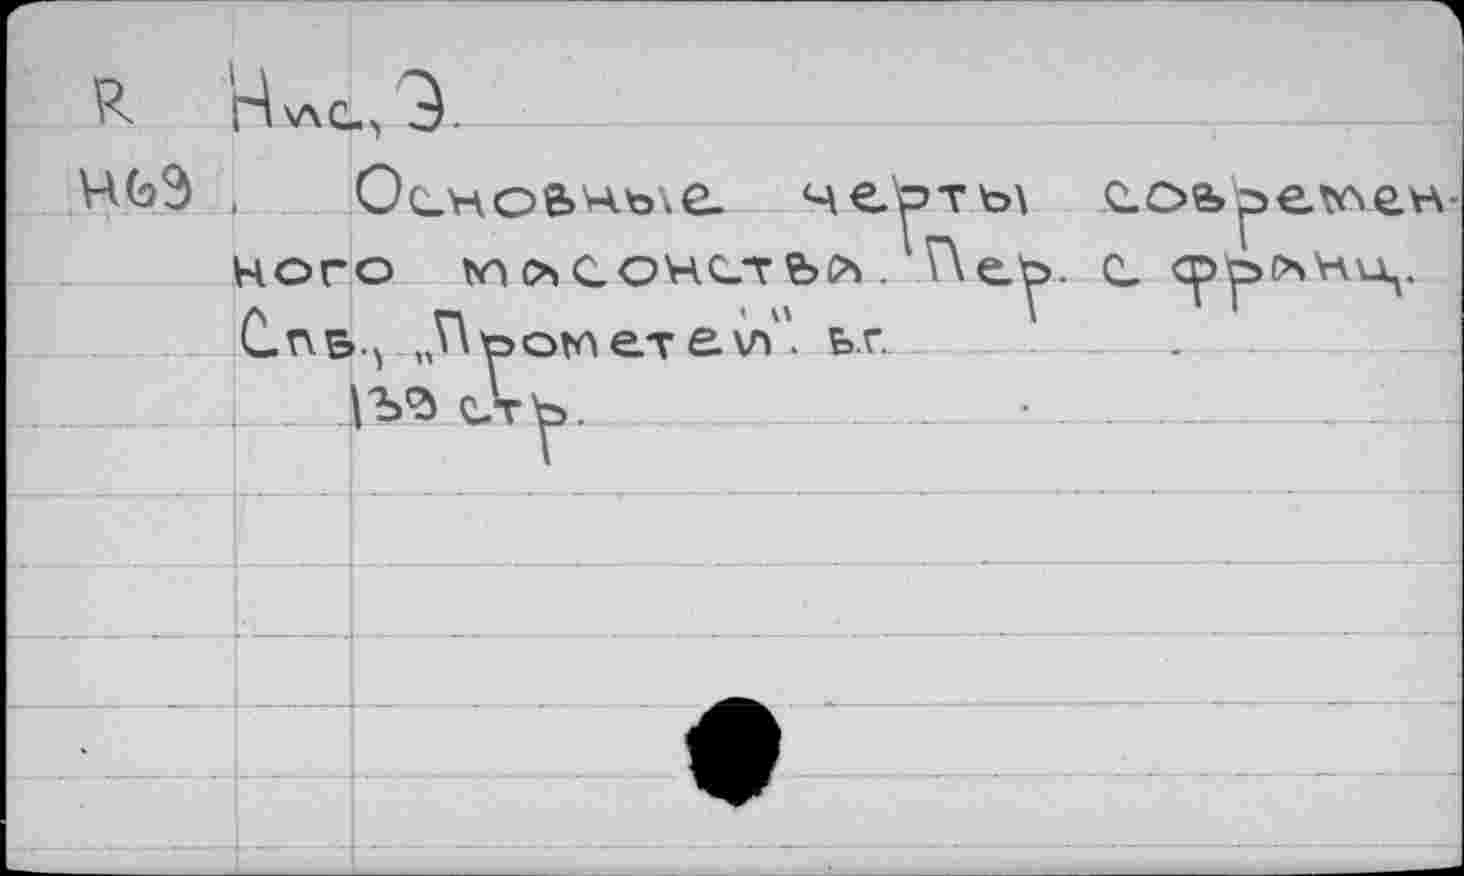 R Нис, Э.
Н69 Основные черты современ-
ного масонства. Пер. с франц.
Спб., „Прометей". б.г.
139 стр.